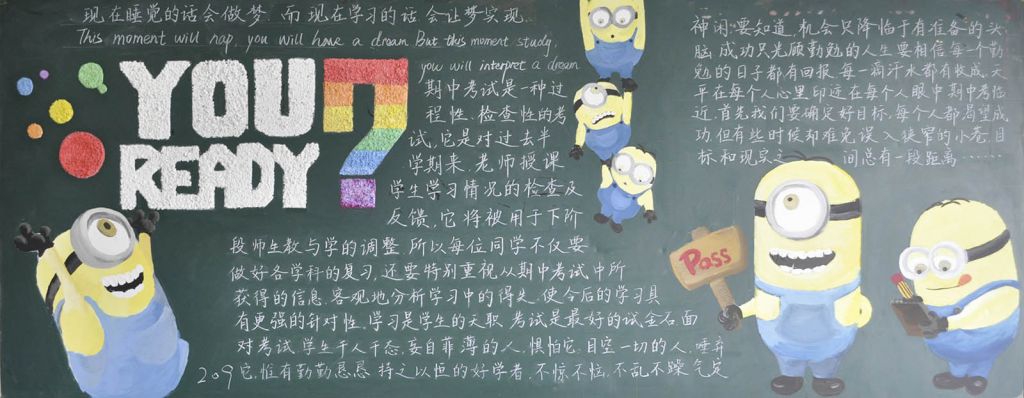 现在睡觉的话会做梦,而现在学习的话会让梦实现
This moment will nap, you will have a dream But this moment study,
you will interpret a dream
YOU
READY?
期中考试是一种过
程性、检查性的考
试,它是对过去半
学期来,老师授课
学生学习情况的检查及
反馈,它将被用于下阶
段师生教与学的调整 所以每位同学不仅要
做好各学科的复习,还要特别重视从期中考试中所
获得的信息,客观地分析学习中的得失,使今后的学习具
有更强的针对性,学习是学生的天职 考试是最好的试金石面
对考试 学生千人千态,妄自菲薄的人,惧怕它,目空一切的人,唾弃
它,惟有勤勤恳恳 持之以恒的好学者,不惊不怯,不乱不躁气定
209
神闲.要知道,机会只降临于有准备的头
脑,成功只光顾勤勉的人生要相信每个勤
勉的日子都有回报,每一滴汗水都有收成,天
平在每个人心里印迹在每个人眼中 期中考临
近,首先我们要确定好目标,每个人都渴望成
功 但有些时候却难免误入狭窄的小巷,目
标和现实之间总有一段距离······
Pass